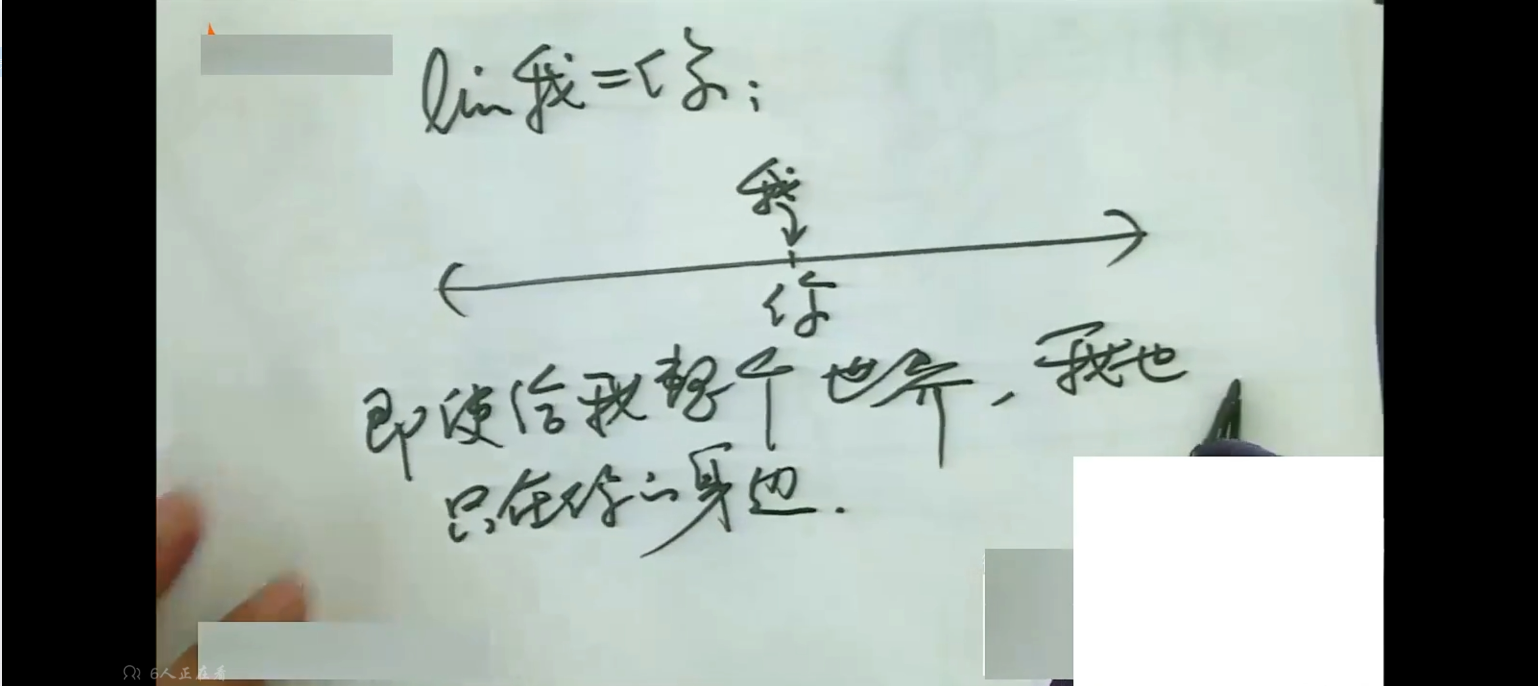 lim 我=你;
我
你
即使给我整个世界，我也
只在你的身边.
6人正在看